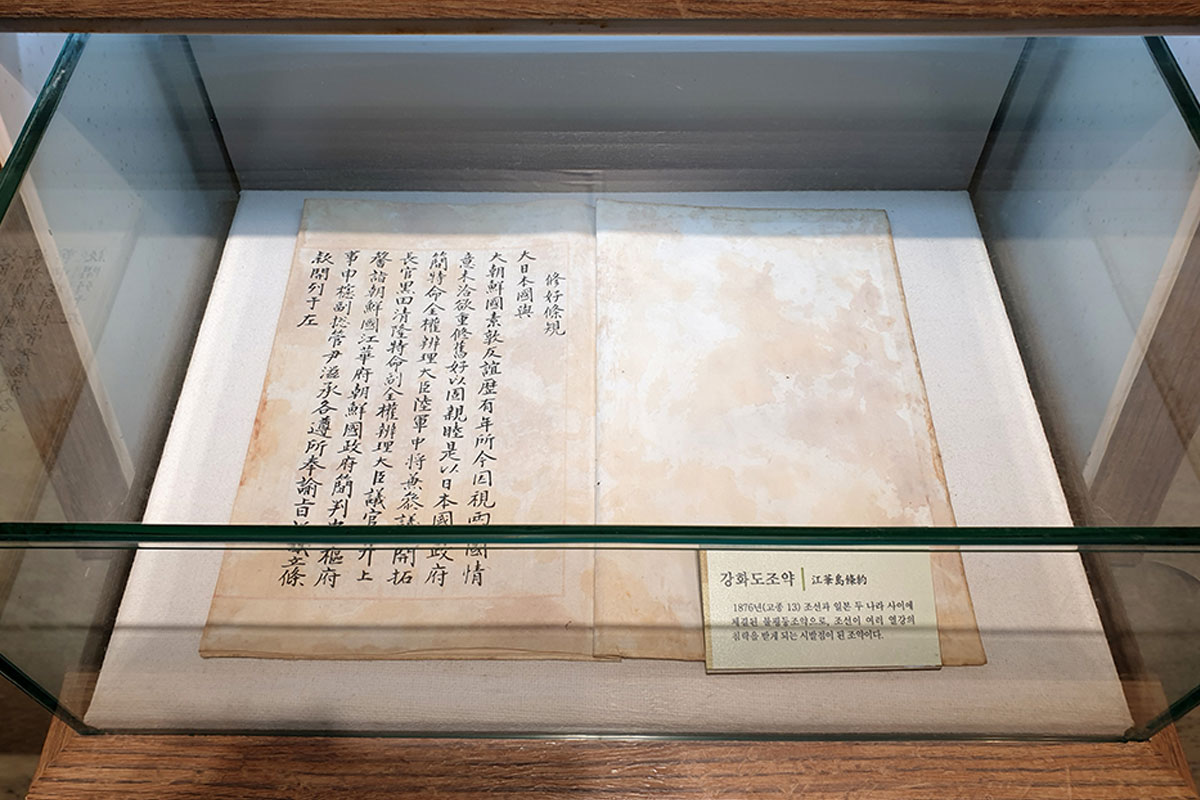 修好條規
大日本國與
大朝鮮國素敦友誼歷有年所今因視両國情
意未洽欲重修舊好以固親睦是以日本國政府
簡特命全權辨理大臣陸軍中將兼參議開拓
長官黑田清隆特命副全權辨理大臣議官井上
馨詣朝鮮國江華府朝鮮國政府簡判中樞府
事申櫶副捴管尹滋承各遵所奉諭旨議立條
款開列于左
강화도조약 | 江華島條約
1876년(고종 13) 조선과 일본 두 나라 사이에
체결된 불평등조약으로, 조선이 여러 열강의
침략을 받게 되는 시발점이 된 조약이다.